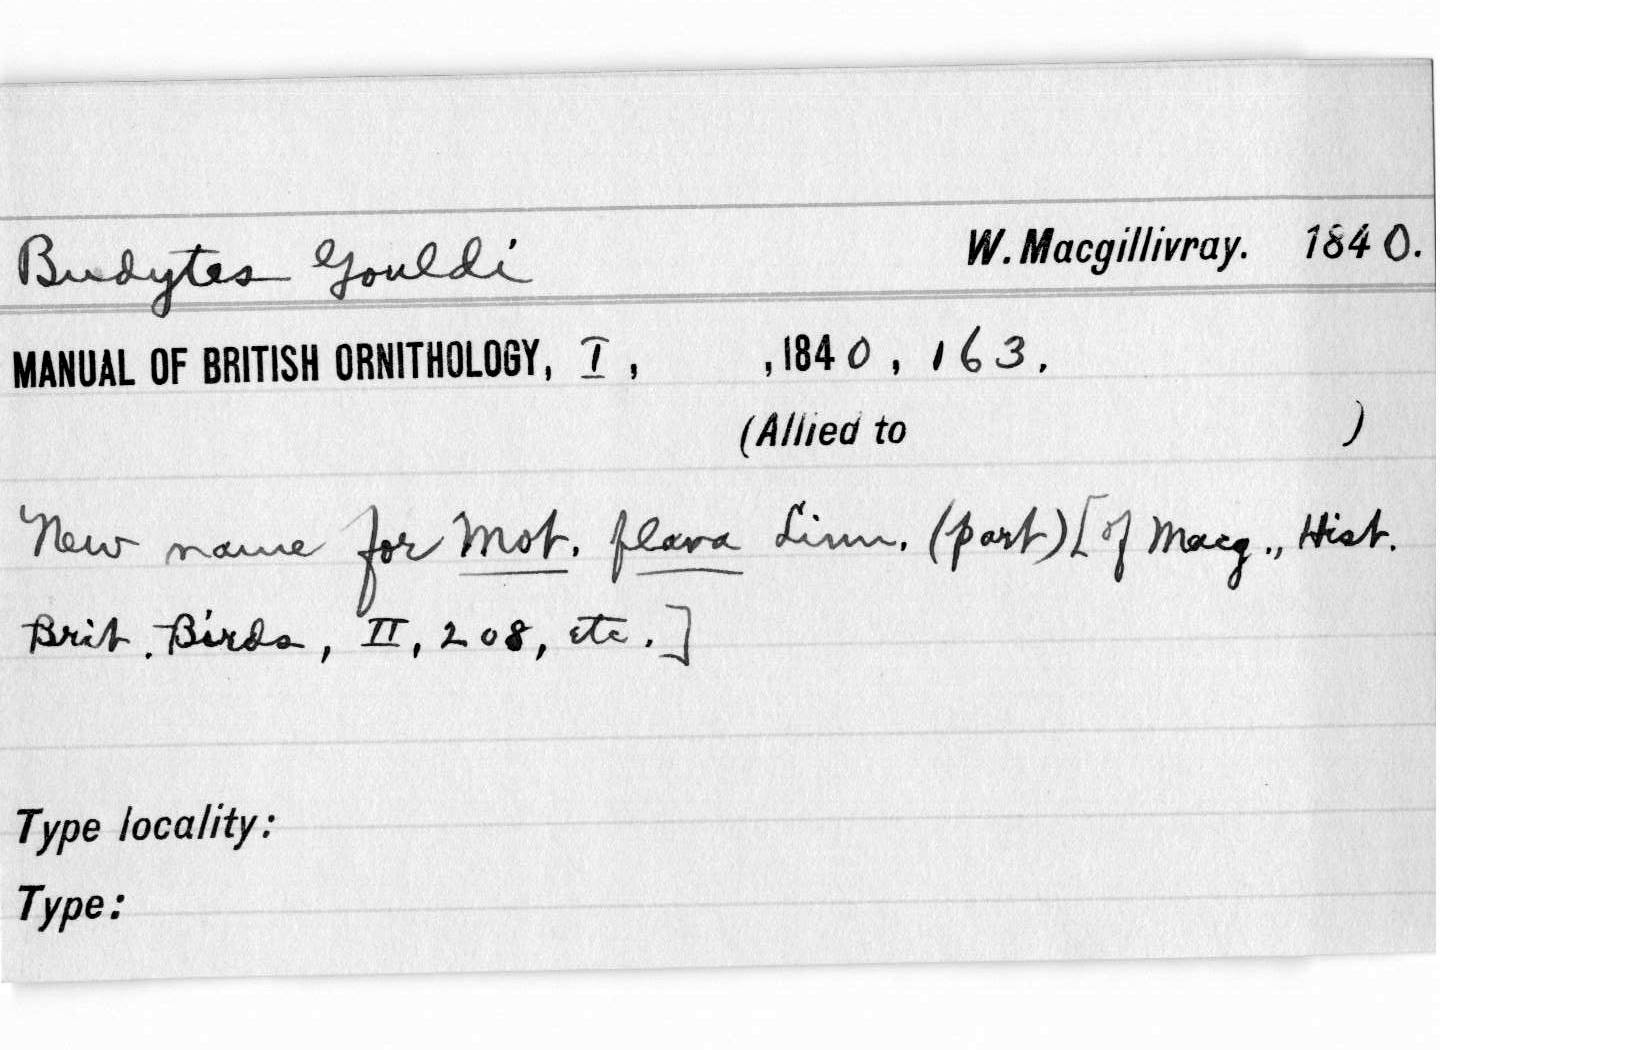 Budytes Gouldi W. Macgillivray. 1840.
MANUAL OF BRITISH ORNITHOLOGY, I, ,1840, 163.
(Allied to )
New name for Mot. flava Linn. (part) [of Macg., Hist.
Brit. Birds, II, 208, etc.]
Type locality:
Type: